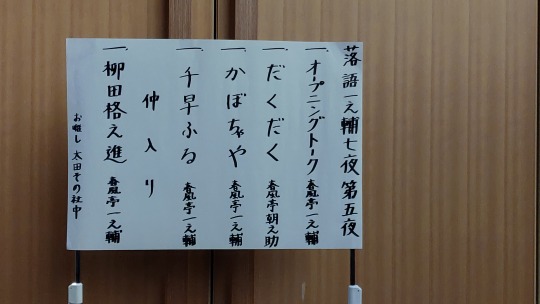 落語一之輔七夜第五夜
一、オープニングトーク 春風亭一之輔
一、だくだく 春風亭朝之助
一、かぼちゃや 春風亭一之輔
一、千早ふる 春風亭一之輔
仲入り
一、柳田格之進 春風亭一之輔
お囃し 太田その社中